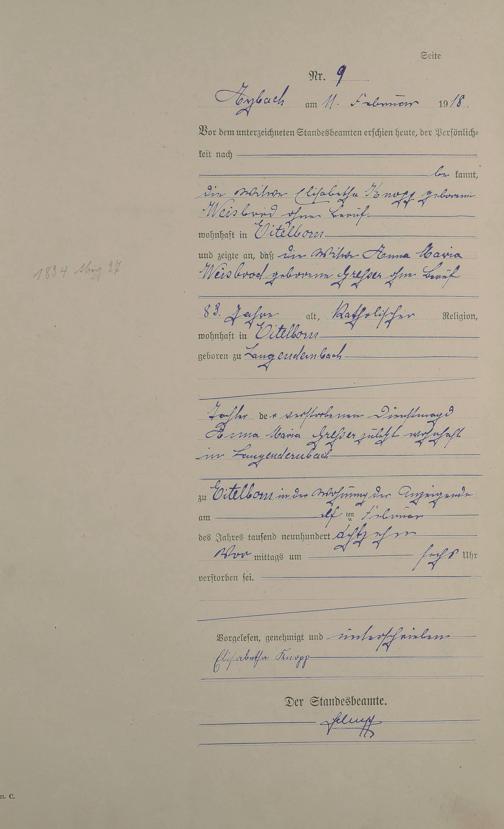 Seite
Nr. 9
Arzbach am 11. Februar 1918.
Vor dem unterzeichneten Standesbeamten erschien heute, der Persönlich-
keit nach
be kannt,
die Witwe Elisabetha Knopp geborene
Weisbrod ohne Beruf
wohnhaft in Eitelborn
und zeigte an, daß die Witwe Anna Maria
Weisbrod geborene Gresser ohne Beruf
83 Jahre alt, Katholischer Religion,
wohnhaft in Eitelborn
geboren zu Langendernbach
Tochter der verstorbenen Dienstmagd
Anna Maria Gresser zuletzt wohnhaft
in Langendernbach
zu Eitelborn in der Wohnung der Anzeigende
am elf ten Februar
des Jahres tausend neunhundert achtzehn
Vor mittags um sechs Uhr
verstorben sei.
Vorgelesen, genehmigt und unterschrieben
Elisabetha Knopp
Der Standesbeamte.
1834 27
n. C.